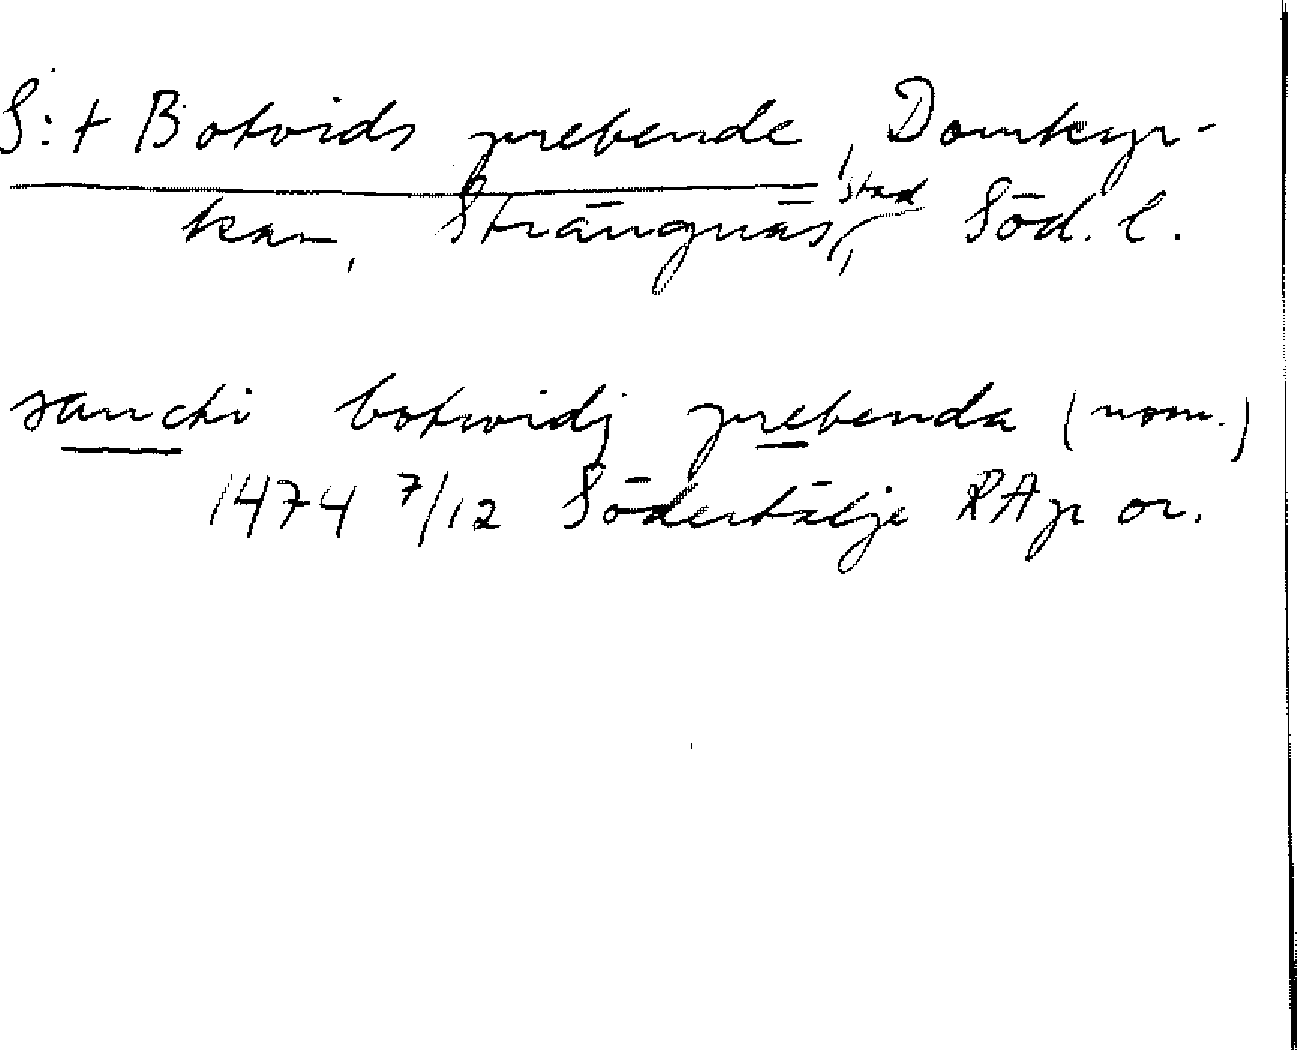 S:t Botvids prebende, Domkyr-
kan, Strängnäs stad, Söd. l.
sancti botwidj prebenda (nom.)
1474 7/12 Södertälje RAp or.